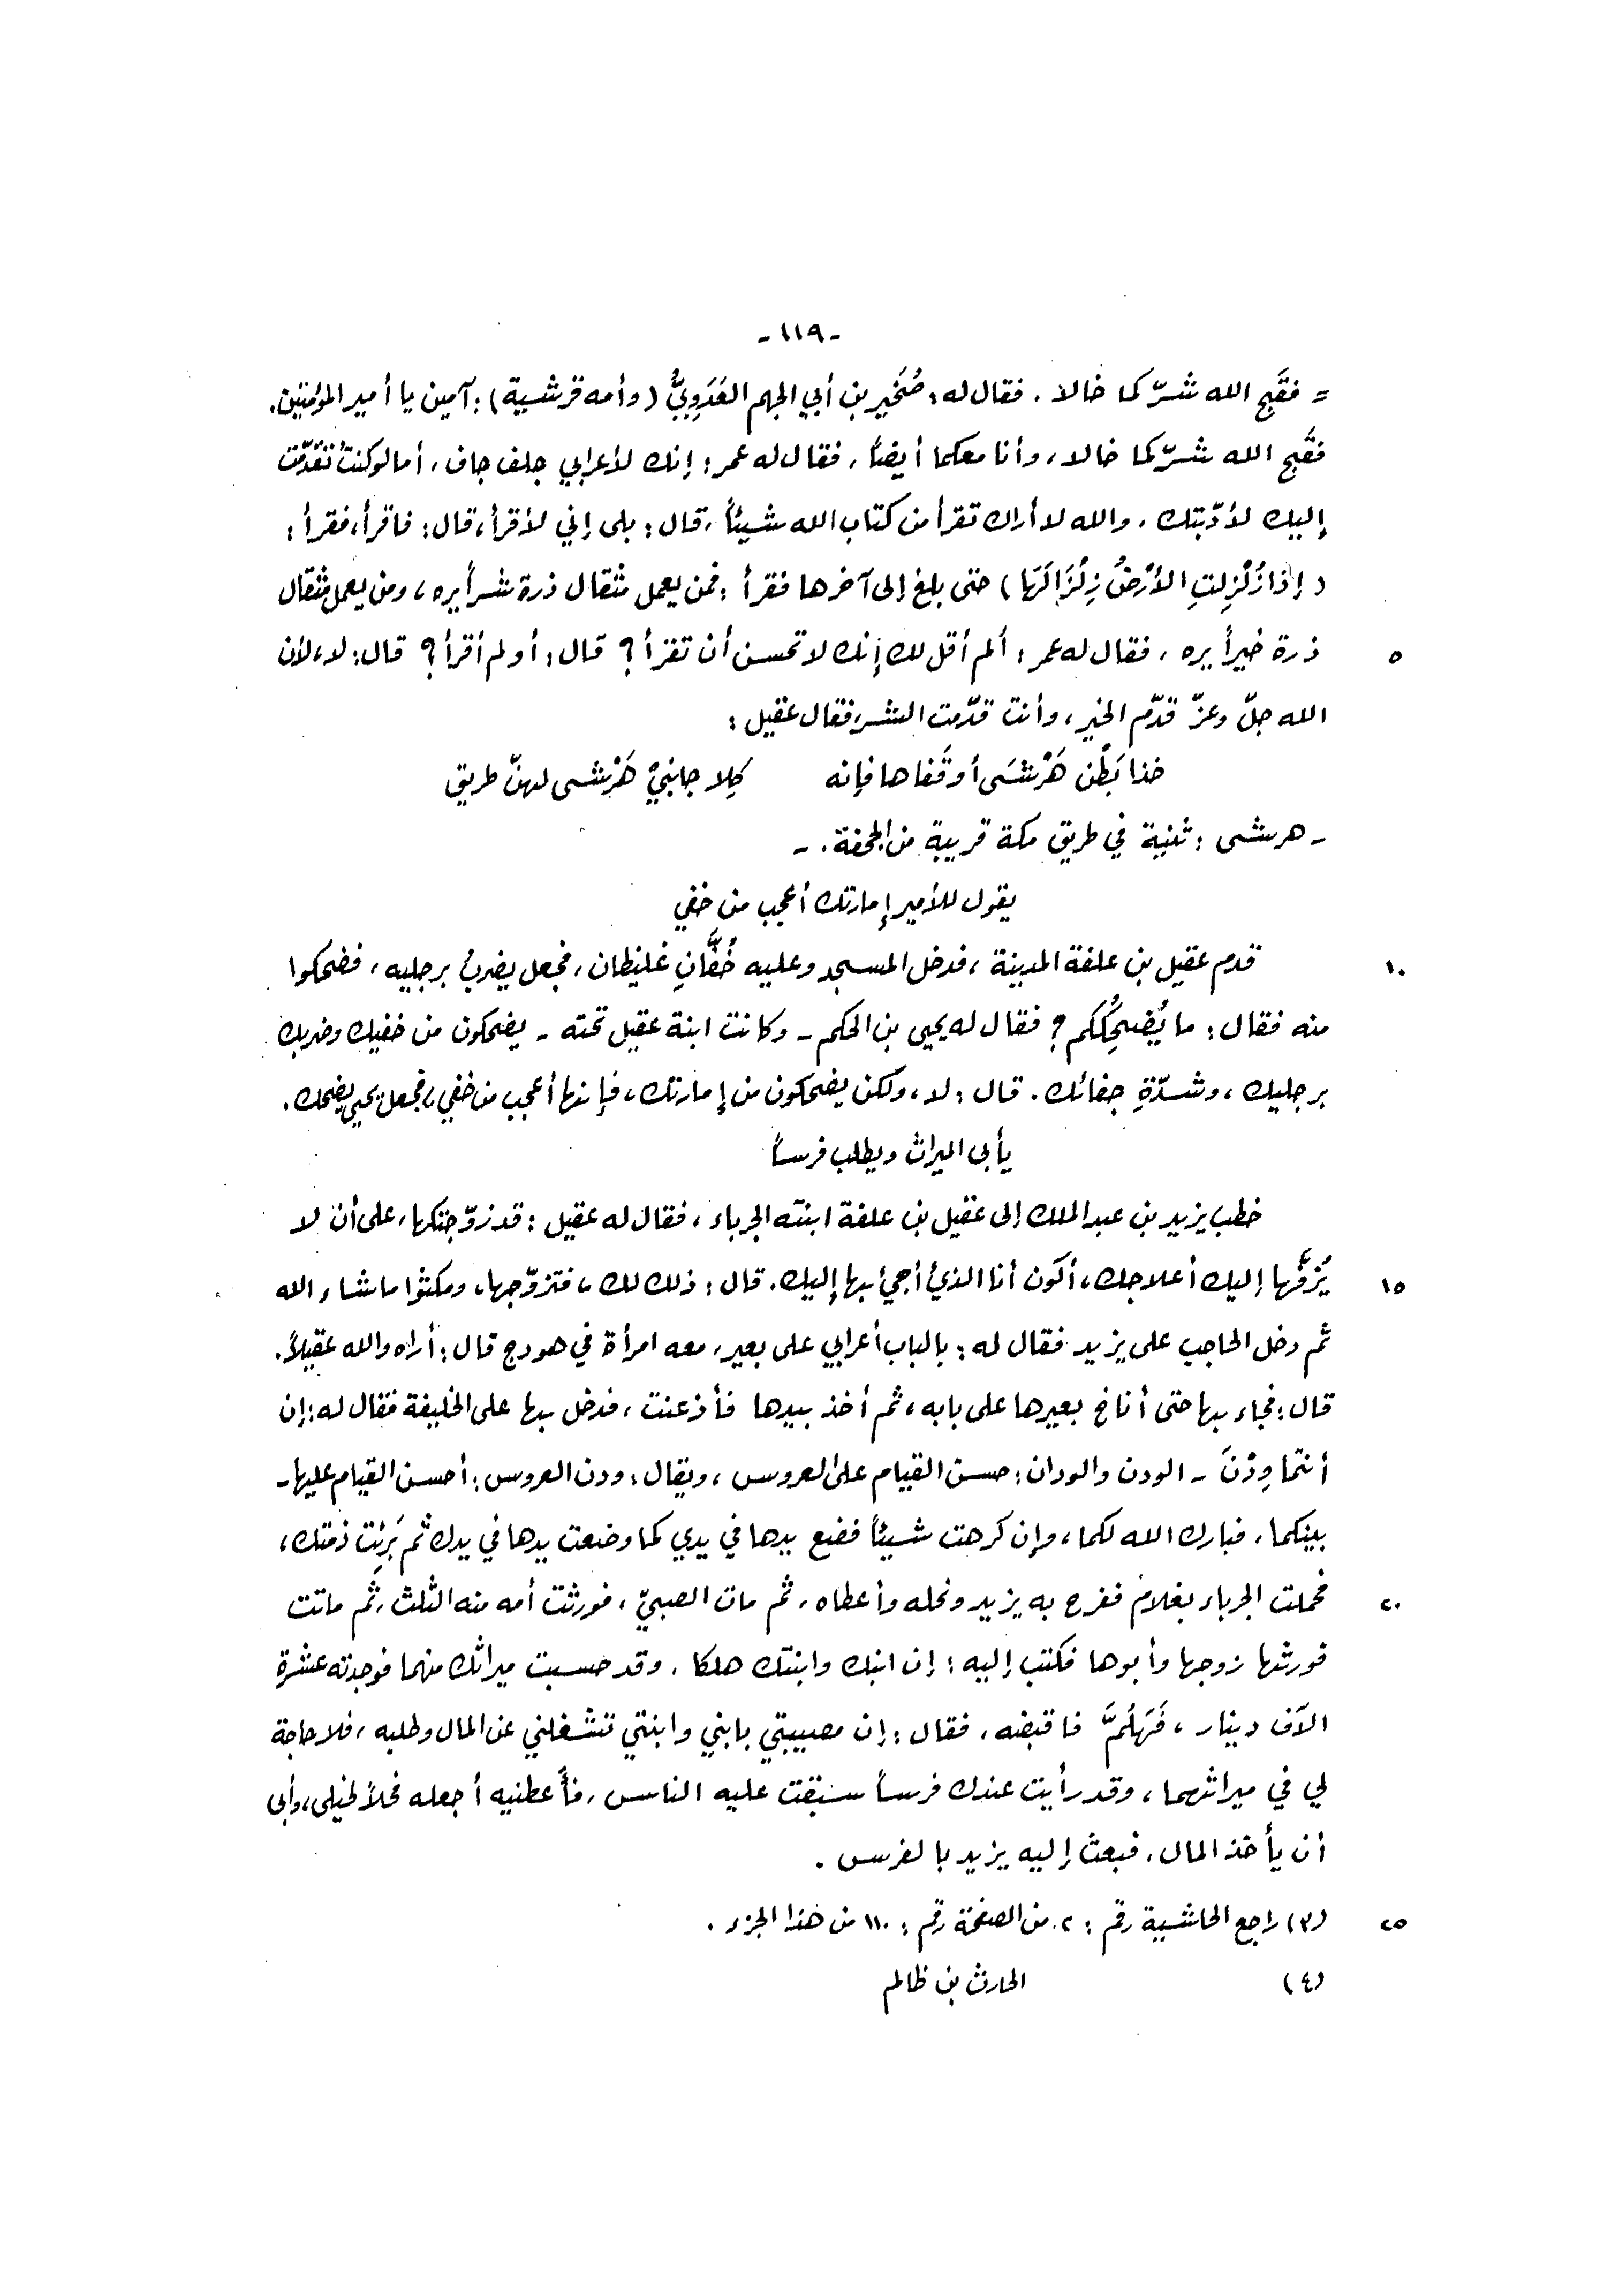 -١١٩-
= فقبَّح الله شرّكما خالا. فقال له: صُخَير بن أبي الجهم العَدَوِيُّ (وأمه قرشية): آمين يا أمير المؤمنين.
فقبَّح الله شرّكما خالا، وأنا معكما أيضاً، فقال له عمر: إنك لأعرابي جلف جاف، أما لو كنتُ تقدّمت
إليك لأدّبتك، والله لا أراك تقرأ من كتاب الله شيئاً، قال: بلى إني لأقرأ، قال: فاقرأ، فقرأ:
(إذَا زُلْزِلتِ الأرْضُ زِلْزَالَهَا) حتى بلغ إلى آخرها فقرأ: فمن يعمل مثقال ذرة شراً يره، ومن يعمل مثقال
٥ ذرة خيراً يره، فقال له عمر: ألم أقل لك إنك لا تحسن أن تقرأ؟ قال: أولم أقرأ؟ قال: لا، لأن
الله جلّ وعزّ قدّم الخير، وأنت قدّمت الشر، فقال عقيل:
خذا بَطْن هَرْشَى أو قَفاها فإنه كِلا جانِبَيْ هَرْشى لهنّ طريق
- هرشى: ثنية في طريق مكة قريبة من الجحفة. -
يقول للأمير إمارتك أعجب من خفي
١٠ قدم عقيل بن علفة المدينة، فدخل المسجد وعليه خُفَّانِ غليظان، فجعل يضربُ برجليه، فضحكوا
منه فقال: ما يُضحِكُكم؟ فقال له يحيى بن الحكم - وكانت ابنة عقيل تحته - يضحكون من خفيك وضربك
برجليك، وشدّةِ جفائك. قال: لا، ولكن يضحكون من إمارتك، فإنها أعجب من خفي، فجعل يحيى يضحك.
يأبى الميراث ويطلب فرساً
خطب يزيد بن عبد الملك إلى عقيل بن علفة ابنته الجرباء، فقال له عقيل: قد زوّجتكها، على أن لا
١٥ يُزفَّها إليك أعلاجك، أكون أنا الذي أجيُ بها إليك. قال: ذلك لك، فتزوّجها، ومكثوا ما شاء الله
ثم دخل الحاجب على يزيد فقال له: بالباب أعرابي على بعير، معه امرأة في هودج قال: أراه والله عقيلاً.
قال: فجاء بها حتى أناخ بعيرها على بابه، ثم أخذ بيدها فأذعنت، فدخل بها على الخليفة فقال له: إن
أنتما وِدْنَ - الودن والودان: حسن القيام على العروس، ويقال: ودن العروس: أحسن القيام عليها -
بينكما، فبارك الله لكما، وإن كرهت شيئاً فضع يدها في يدي كما وضعت يدها في يدك ثم بَرِئت ذمتك،
٢٠ فحملت الجرباء بغلام ففرح به يزيد ونحله وأعطاه، ثم مات الصبيّ، فورثت أمه منه الثلث، ثم ماتت
فورثها زوجها وأبوها فكتب إليه: إن ابنك وابنتك هلكا، وقد حسبت ميراثك منهما فوجدته عشرة
الآف دينار، فَهَلُمَّ فاقبضه، فقال: إن مصيبتي بابني وابنتي تشغلني عن المال وطلبه، فلا حاجة
لي في ميراثهما، وقد رأيت عندك فرساً سبقت عليه الناس، فأعطنيه أجعله فحلاً لخيلي، وأبى
أن يأخذ المال، فبعث إليه يزيد بالفرس.
٢٥ (٣) راجع الحاشية رقم: ٢ من الصفحة رقم: ١١٠ من هذا الجزء.
(٤) الحارث بن ظالم